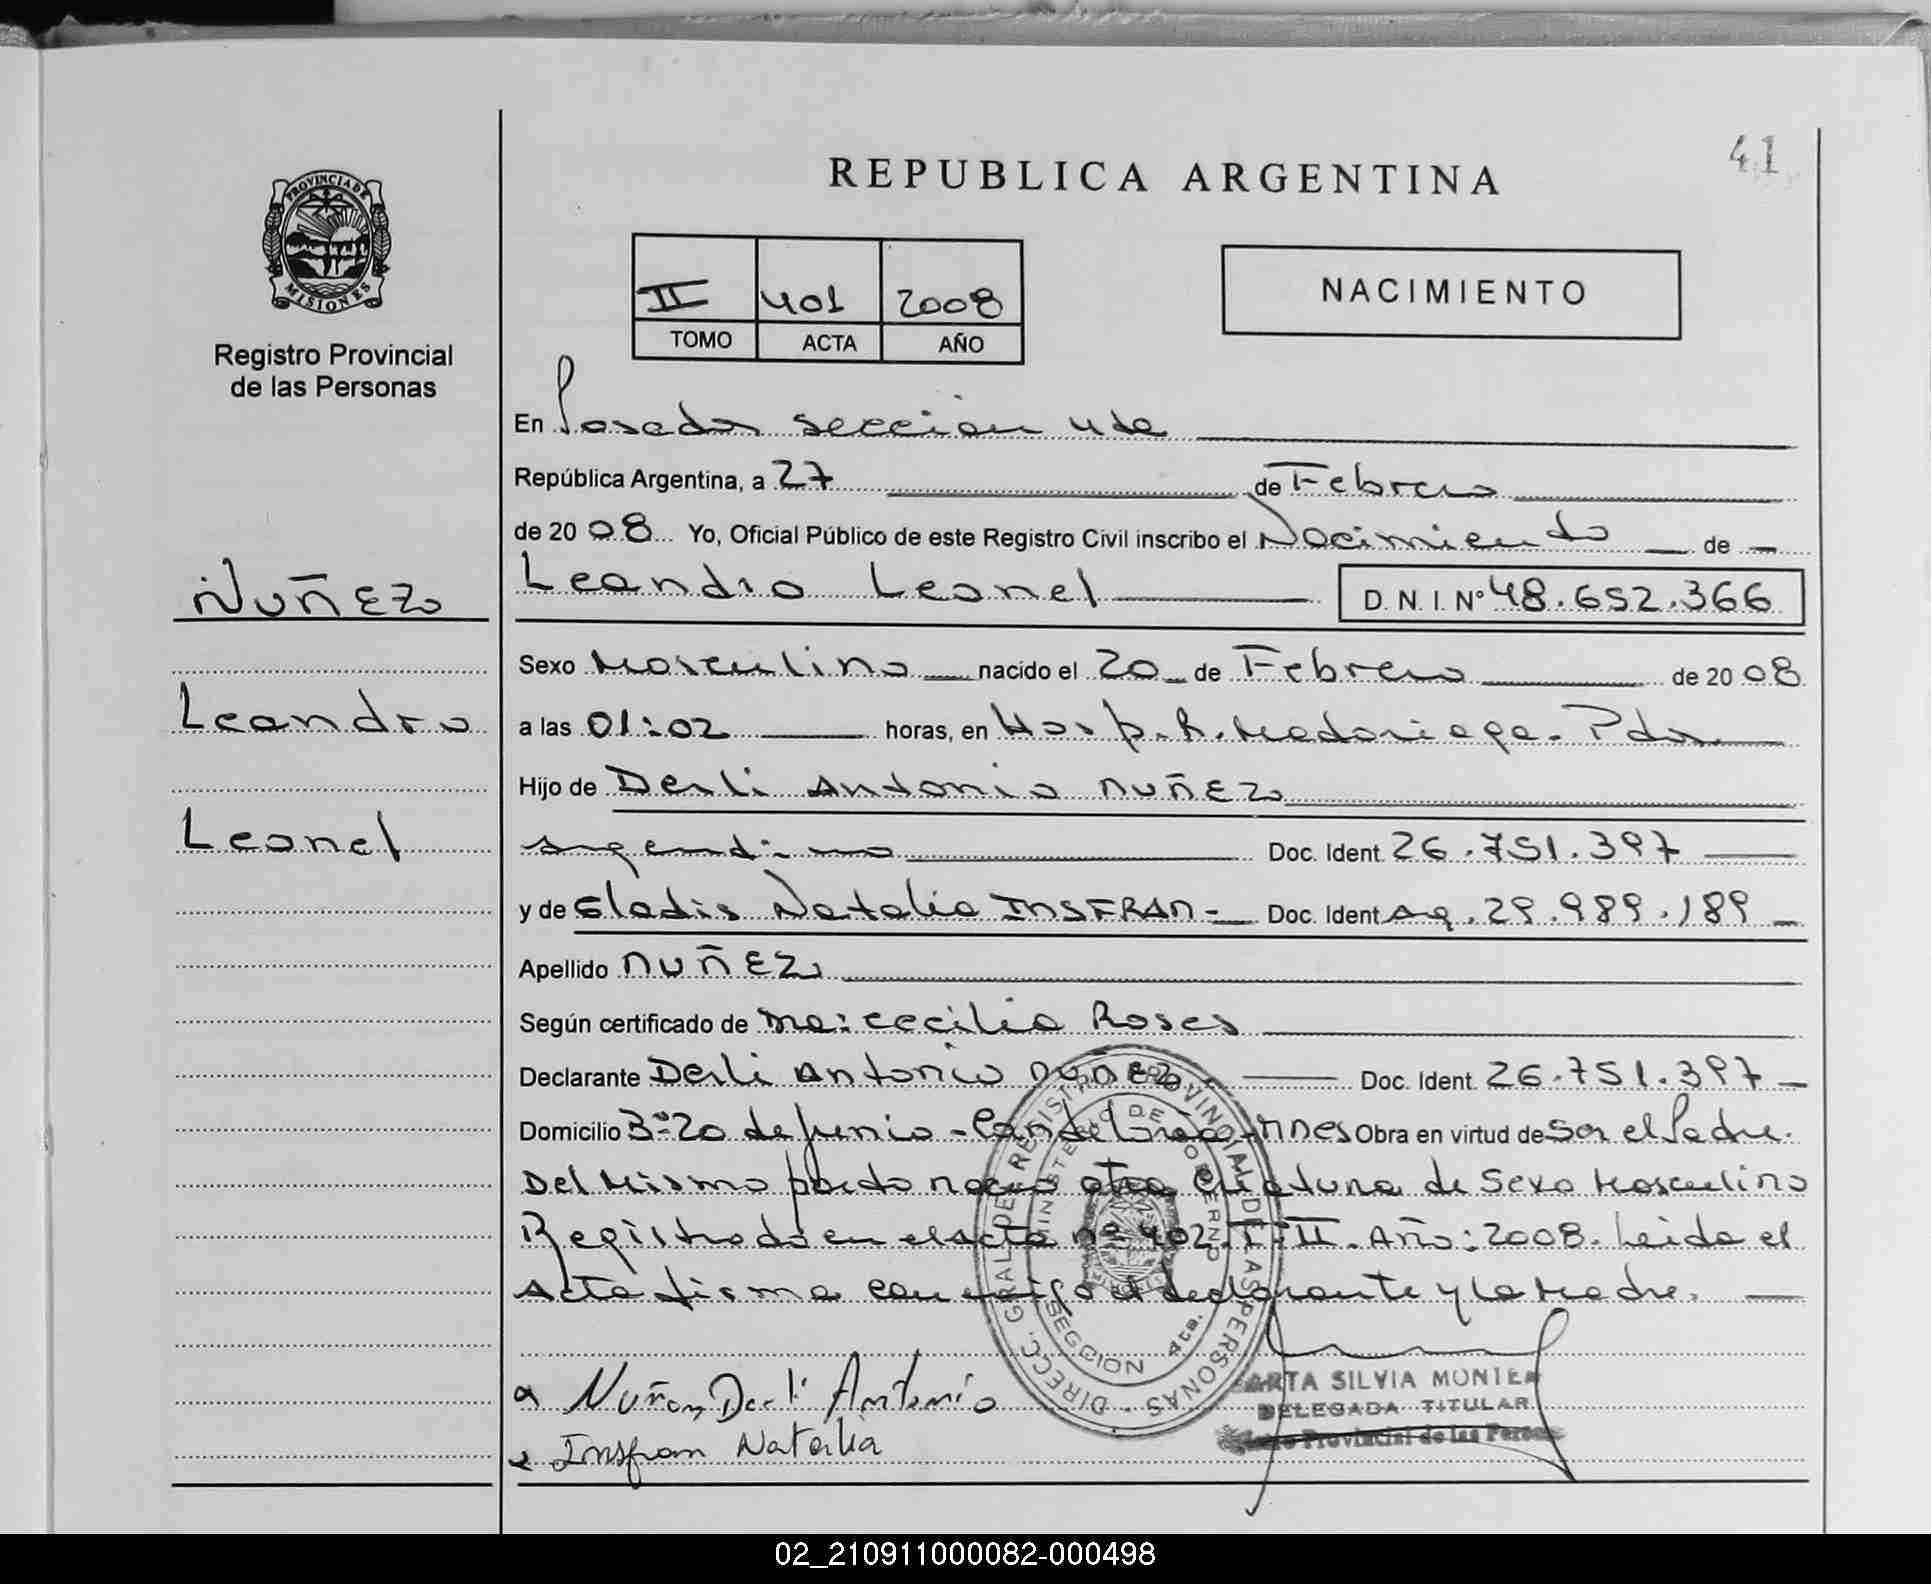 41
PROVINCIA DE
MISIONES
Registro Provincial
de las Personas
REPUBLICA ARGENTINA
II 401 2008
TOMO ACTA AÑO
NACIMIENTO
En Posadas sección 4ta
República Argentina, a 27 de Febrero
de 2008 Yo, Oficial Público de este Registro Civil inscribo el Nacimiento de
NUÑEZ
Leandro Leonel D. N. I. Nº 48.652.366
Sexo Masculino nacido el 20 de Febrero de 2008
Leandro
a las 01:02 horas, en Hosp. R. Madariaga. Pdas
Hijo de Derli Antonio NUÑEZ
Leonel
Argentino Doc. Ident. 26.751.397
y de Gladis Natalia INSFRAN - Doc. Ident Ag. 29.989.189
Apellido NUÑEZ
Según certificado de Ma: Cecilia Roses
Declarante Derli Antonio NUÑEZ Doc. Ident. 26.751.397
Domicilio Bº 20 de Junio - Candelaria - MNES Obra en virtud de Ser el Padre.
Del Mismo parto nació otra Criatura de Sexo Masculino
Registrado en el acta nº 402. T: II. Año: 2008. Leida el
Acta firma conmigo el declarante y la Madre.
DIRECC. GRAL DE REGISTRO PROVINCIAL DE LAS PERSONAS
MINISTERIO DE GOBIERNO
SECCION 4ta.
MISIONES
Nuñez Derli Antonio
Insfran Natalia
ARTA SILVIA MONTIEL
DELEGADA TITULAR
Provincial de las Perso
02_210911000082-000498